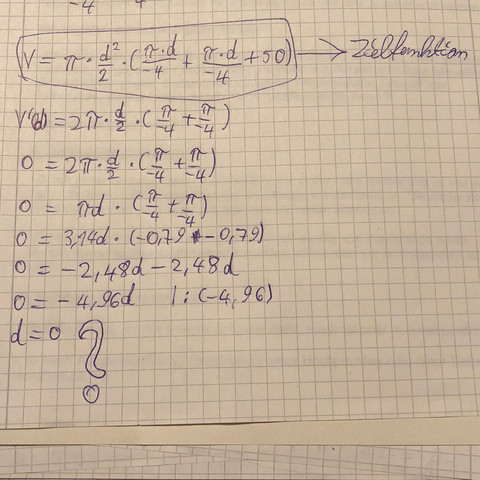 -4 4
V = π · d²/2 · (π·d/-4 + π·d/-4 + 50) → Zielfunktion
V'(d) = 2π · d/2 · (π/-4 + π/-4)
0 = 2π · d/2 · (π/-4 + π/-4)
0 = πd · (π/-4 + π/-4)
0 = 3,14d · (-0,79 - 0,79)
0 = -2,48d - 2,48d
0 = -4,96d |: (-4,96)
d = 0 ?